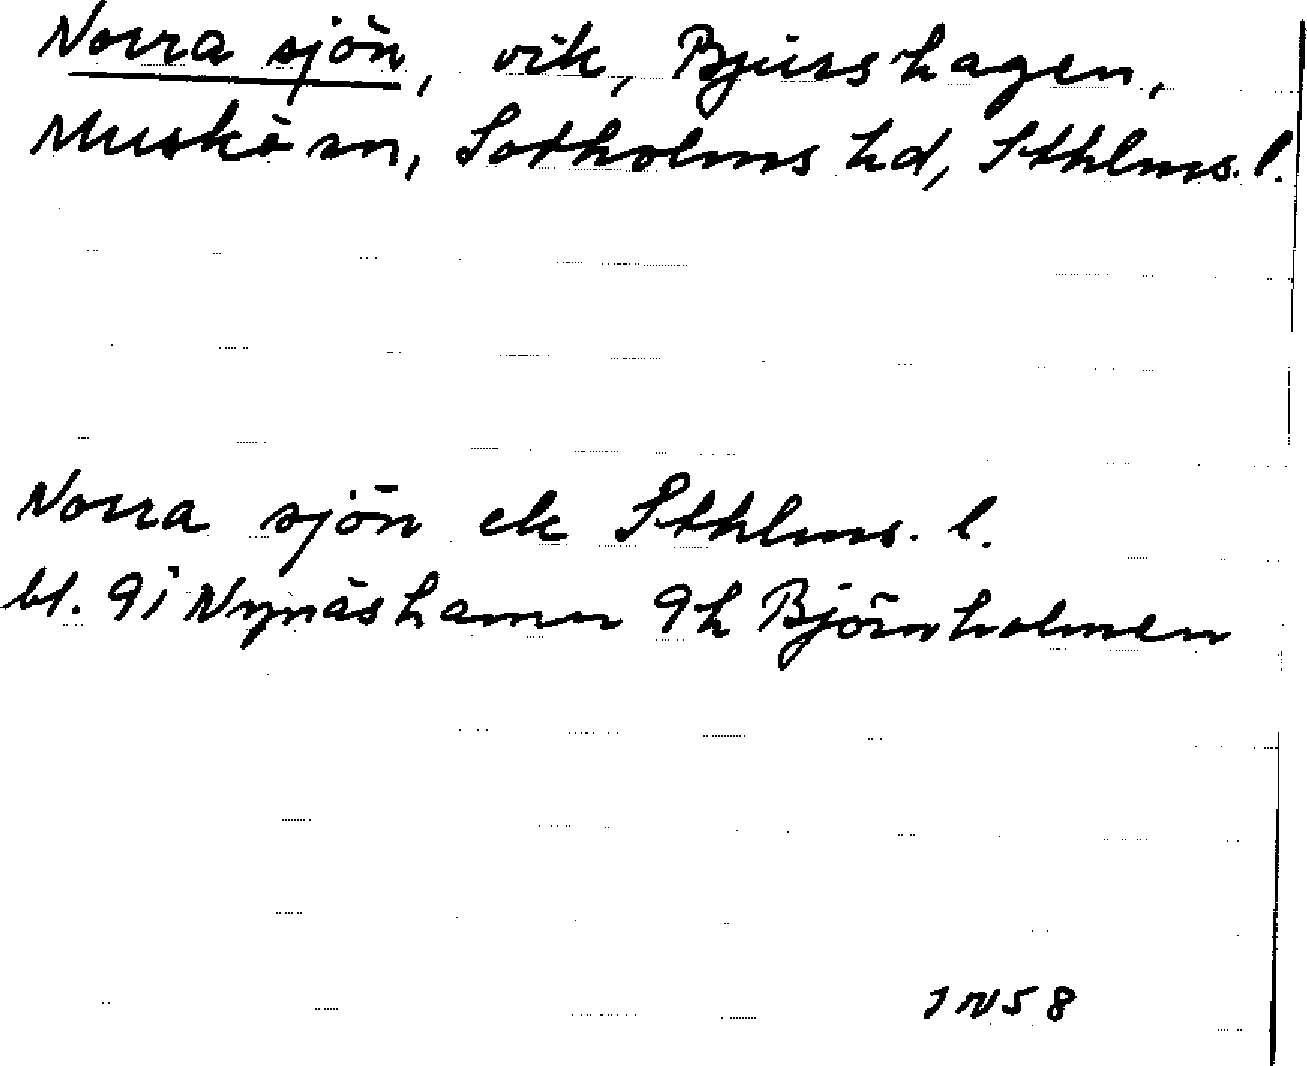 Norra sjön, vik, Bjurshagen,
Muskö sn, Sotholms hd, Sthlms. l.
Norra sjön ek Sthlms. l.
bl. 9i Nynäshamn 9h Björnholmen
INS8